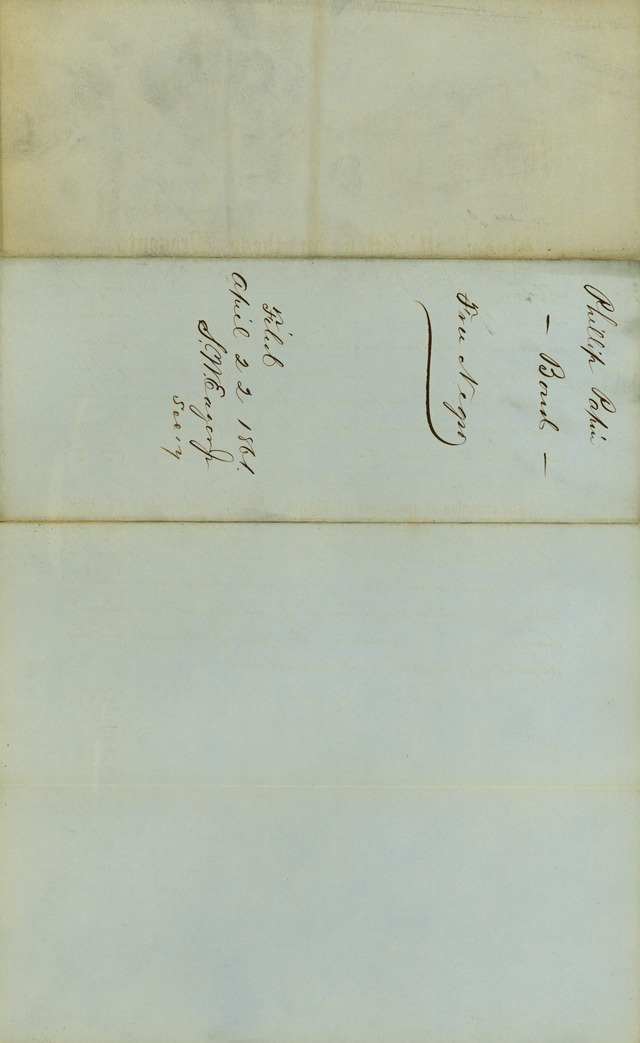 Phillip Papin
— Bond —
Free Negro
Filed
April 22 1861.
S. W. Eager Jr
Secry